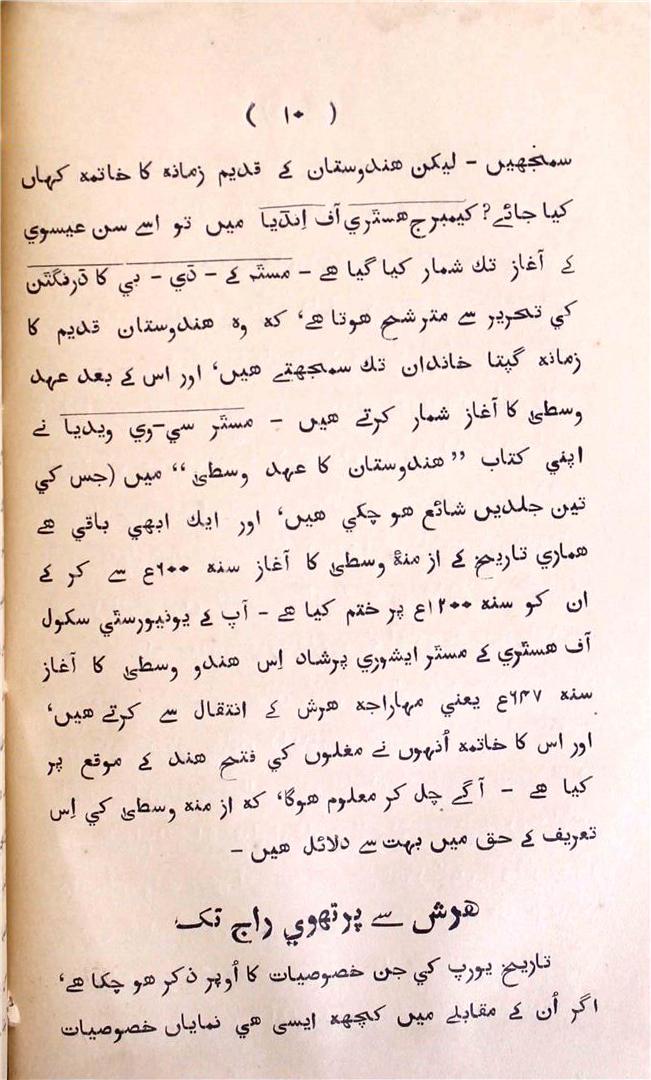 ( ۱۰ )
سمجھیں - لیکن ھندوستان کے قدیم زمانہ کا خاتمہ کہاں
کیا جائے؟ کیمبرج ھسٹری آف اِنڈیا میں تو اسے سن عیسوی
کے آغاز تک شمار کیا گیا ھے - مسٹر کے - ڈی - بی کا ڈرنگٹن
کی تحریر سے مترشح ھوتا ھے، کہ وہ ھندوستان قدیم کا
زمانہ گپتا خاندان تک سمجھتے ھیں، اور اس کے بعد عہد
وسطیٰ کا آغاز شمار کرتے ھیں - مسٹر سی-وی ویدیا نے
اپنی کتاب ”ھندوستان کا عہد وسطیٰ“ میں (جس کی
تین جلدیں شائع ھو چکی ھیں، اور ایک ابھی باقی ھے
ھماری تاریخ کے ازمنۂ وسطیٰ کا آغاز سنہ ۶۰۰ع سے کر کے
ان کو سنہ ۱۲۰۰ع پر ختم کیا ھے - آپ کے یونیورسٹی سکول
آف ھسٹری کے مسٹر ایشوری پرشاد اِس ھندو وسطیٰ کا آغاز
سنہ ۶۴۷ع یعنی مہاراجہ ھرش کے انتقال سے کرتے ھیں،
اور اس کا خاتمہ اُنہوں نے مغلوں کی فتح ھند کے موقع پر
کیا ھے - آگے چل کر معلوم ھوگا، کہ ازمنہ وسطیٰ کی اِس
تعریف کے حق میں بہت سے دلائل ھیں -
ھرش سے پرتھوی راج تک
تاریخ یورپ کی جن خصوصیات کا اُوپر ذکر ھو چکا ھے،
اگر اُن کے مقابلے میں کچھہ ایسی ھی نمایاں خصوصیات